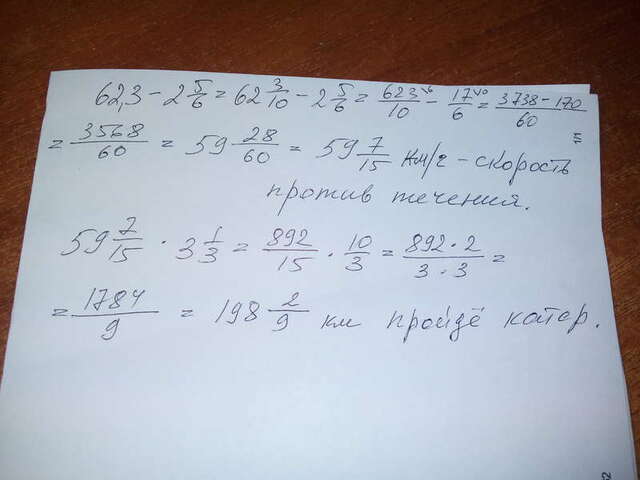 62,3 - 2 5/6 = 62 3/10 - 2 5/6 = 623/10 - 17/6 = 3738 - 170/60
= 3568/60 = 59 28/60 = 59 7/15 км/г - скорость
против течения.
59 7/15 · 3 1/3 = 892/15 · 10/3 = 892 · 2/3 · 3 =
= 1784/9 = 198 2/9 км пройдё катер.